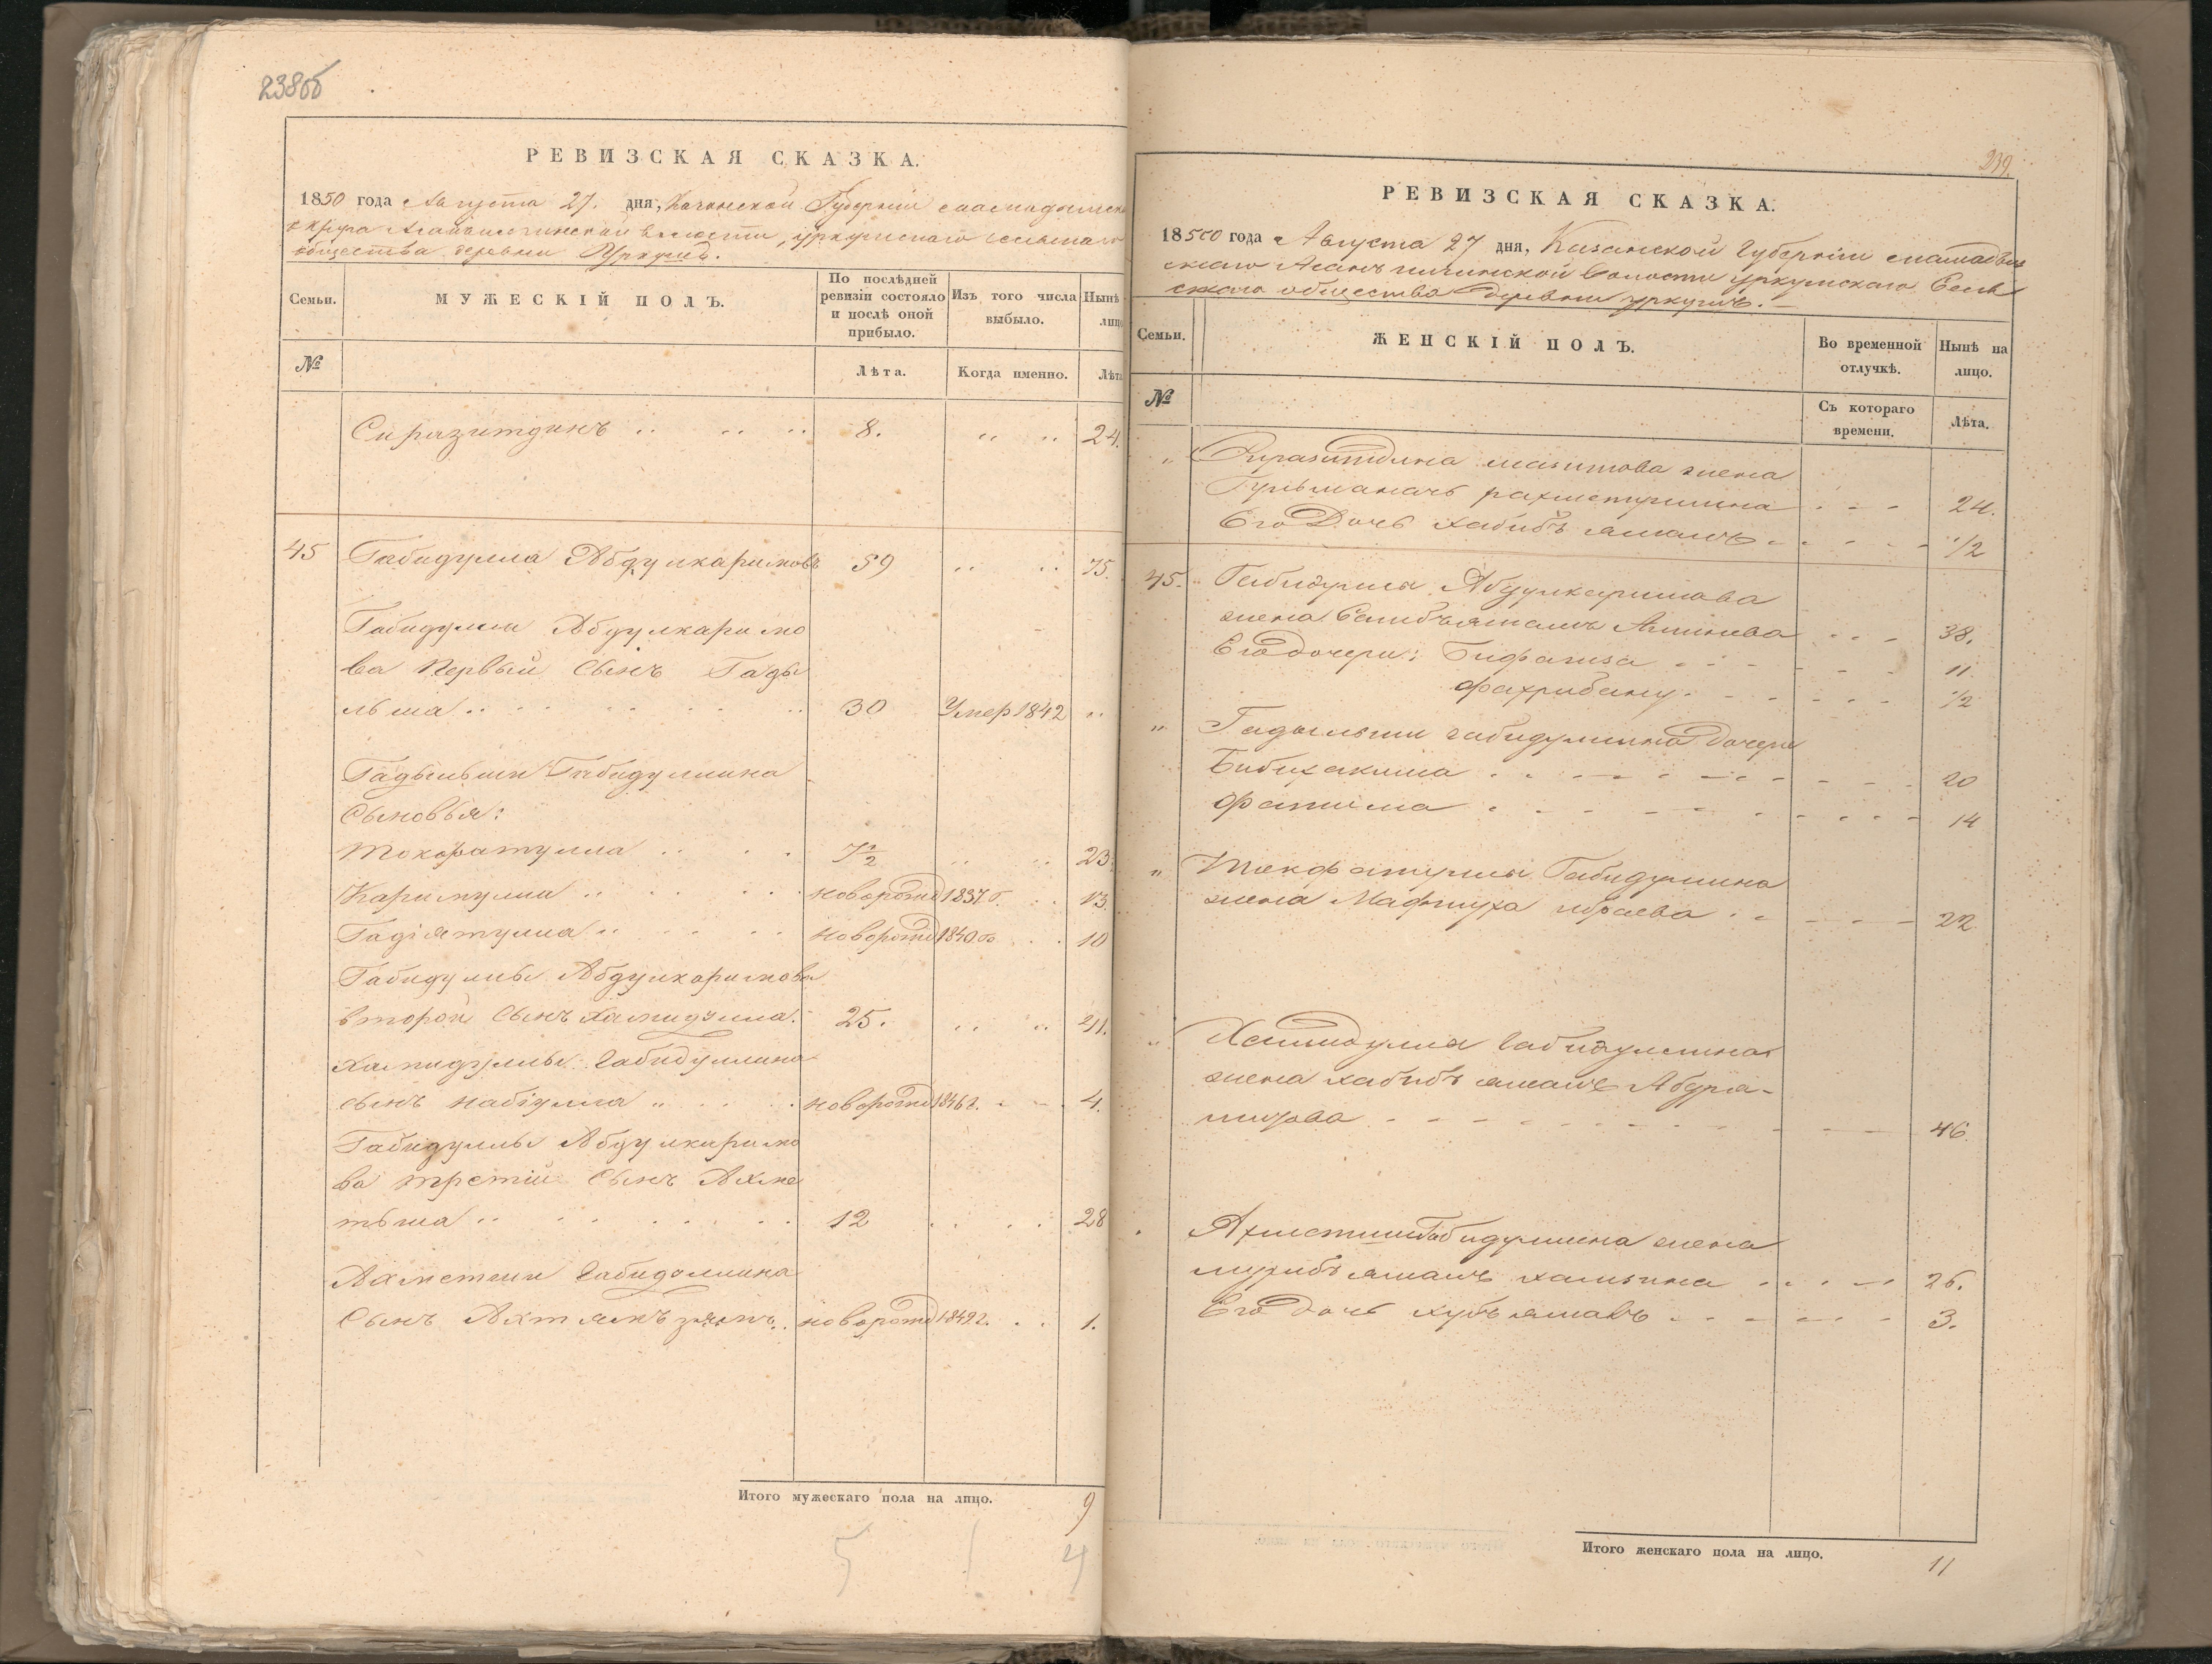 238об
РЕВИЗСКАЯ СКАЗКА.
1850 года Августа 27. дня, Казанской Губерніи мамадышска
округа Асанъилгинской волости, уркумскаго сельскаго
общества деревни Уркумъ.
Семьи.
МУЖЕСКІЙ ПОЛЪ.
По послѣдней ревизіи состояло и послѣ оной прибыло.
Изъ того числа выбыло.
Нынѣ лицо
№
Лѣта.
Когда именно.
Лѣта
Сиразитдинъ .. .. .. 8. .. .. 24.
45 Габидулла Абдулкаримовъ 59 .. .. 75.
Габидуллы Абдулкаримо
ва первый сынъ Гады
льша .. 30 Умер 1842 ..
Гадыльши Габидуллина
Сыновья:
Мокфатулла .. 7½ .. .. 23.
Каримулла .. новорожд 1837 г. 13.
Гадіятулла .. новорожд 1840 го 10
Габидуллы Абдулкаримова
второй сынъ Хамидулла. 25. .. .. 41.
Хамидуллы Габидуллина
сынъ Набіулла .. новорожд 1846 г. 4.
Габидуллы Абдулкаримо
ва третій сынъ Ахме
тьша .. 12 28
Ахметши Габидуллина
Сынъ Ахтямъзянъ .. новорожд 1849 г. 1.
Итого мужескаго пола на лицо. 9
5 1 4
239.
РЕВИЗСКАЯ СКАЗКА.
1850 года Августа 27 дня, Казанской Губерніи мамадыш
скаго Асанъилгинской волости уркумскаго Сель
скаго общества деревни уркумъ.
Семьи.
ЖЕНСКІЙ ПОЛЪ.
Во временной отлучкѣ.
Нынѣ на лицо.
№
Съ котораго времени.
Лѣта.
„ Сиразитдина мазитова жена
Гульманачъ рахметуллина 24.
Его Дочь хабибъ ямалъ 1/2
45. Габидуллы Абдулкаримова
жена Салибъямалъ Аминева 38.
Его дочери: Бифаиза 11.
Фахрибану 1/2
„ Гадыльши габидуллина дочери
Бибихакима 20
Фатима 14
„ Мокфатуллы Габидуллина
жена Мафтуха ибраева 22.
„ Хамидуллы Габидуллина
жена хабибъ ямалъ Абдра-
шитова 46.
Ахметши Габидуллина жена
мухибъ ямалъ хамзина 26.
Его дочь хубъямалъ 3.
Итого женскаго пола на лицо. 11